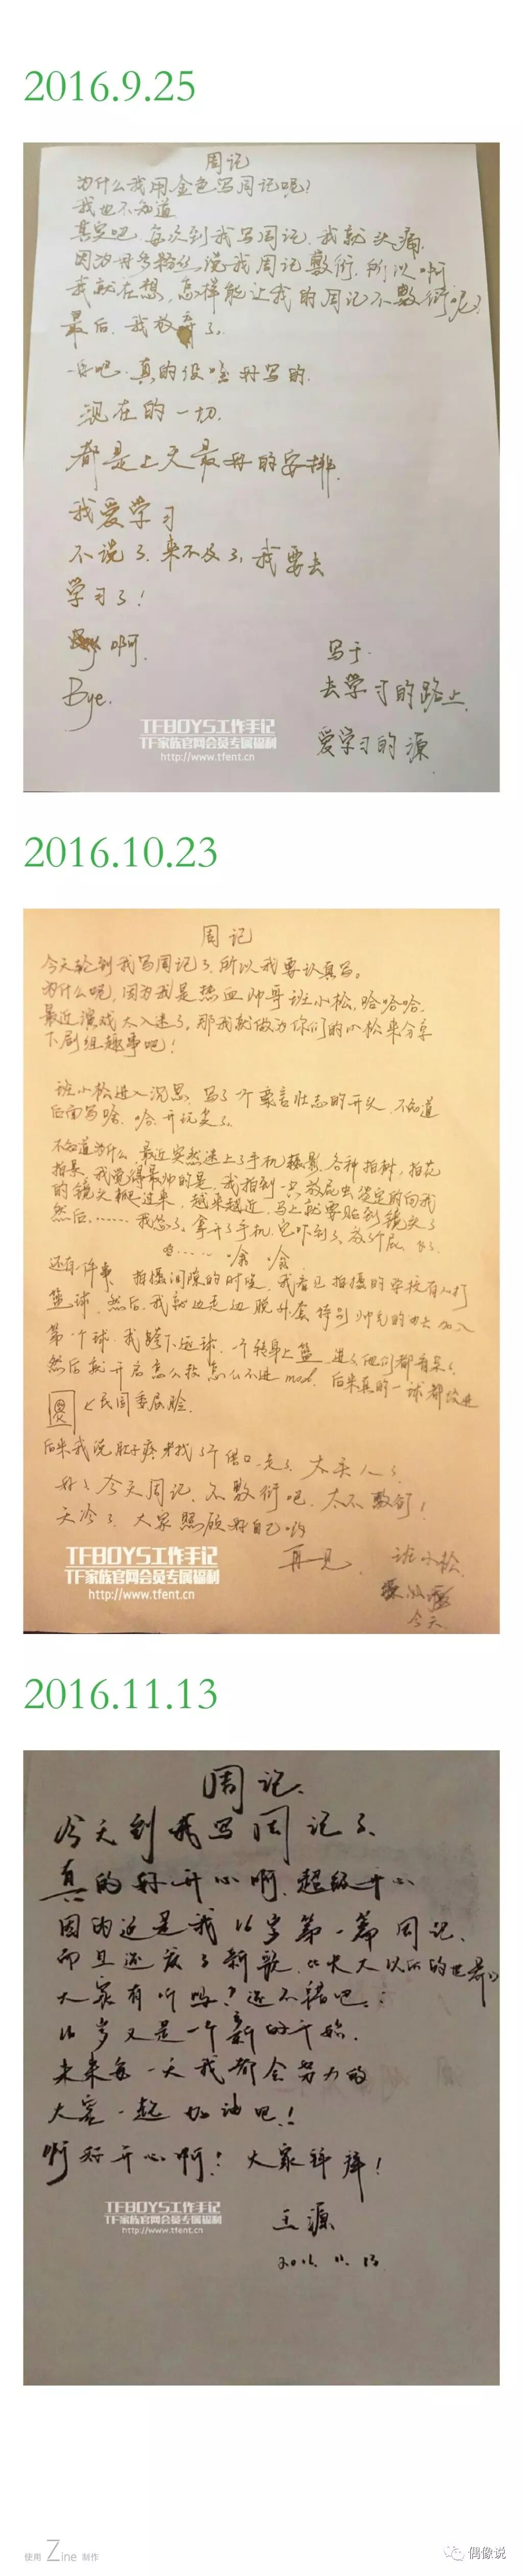 2016.9.25
周记
为什么我用金色写周记呢?
我也不知道
其实吧,每次到我写周记,我就头痛.
因为好多粉丝说我周记敷衍,所以啊
我就在想,怎样能让我的周记不敷衍呢?
最后,我放弃了.
吧.真的没啥好写的.
现在的一切.
都是上天最好的安排.
我爱学习
不说了.来不及了,我要去
学习了!
啊.
写于.
Bye.
去学习的路上.
爱学习的源
TFBOYS工作手记
TF家族官网会员专属福利
http://www.tfent.cn
2016.10.23
周记
今天轮到我写周记了.所以我要认真写。
为什么呢,因为我是热血帅哥班小松,哈哈哈.
最近演戏太入迷了。那我就做为你们的小松来分享
下剧组趣事吧!
班小松进入沉思,写了个豪言壮志的开头,不知道
后面写啥.哈.开玩笑了.
不知道为什么,最近突然迷上了手机摄影,各种拍树,拍花
拍景,我觉得最帅的是,我拍到一只放屁虫坚定的向我
的镜头爬过来,越来越近,马上就要贴到镜头了
然后……我怂了,拿开了手机,它吓到了,放了个屁,
还有件事,拍摄间隙的时候,我看见拍摄的学校有人打
篮球,然后,我就边走边脱外套特别帅气的加入
第一个球.我胯下运球.一个转身上篮.进了,他们都看呆了.
然后就开启怎么投怎么不进mod.后来真的一球都没进
民国委屈脸.
后来我说肚子疼来找了个借口.走了.太丢人了.
好了今天周记,不敷衍吧,太不敷衍!
天冷了,大家照顾好自己哟
再见.
班小松
今天
TFBOYS工作手记
TF家族官网会员专属福利
http://www.tfent.cn
2016.11.13
周记.
今天到我写周记了、
真的好开心啊.超级开心
因为这是我16岁第一篇周记.
而且还发了新歌,《大人以后的世界》
大家有听吗?还不错吧.
16岁又是一个新的开始.
未来每一天我都会努力的
大家一起加油吧!
啊好开心啊!大家拜拜!
王源
2016.11.13
TFBOYS工作手记
TF家族官网会员专属福利
http://www.tfent.cn
使用 Zine 制作
偶像说